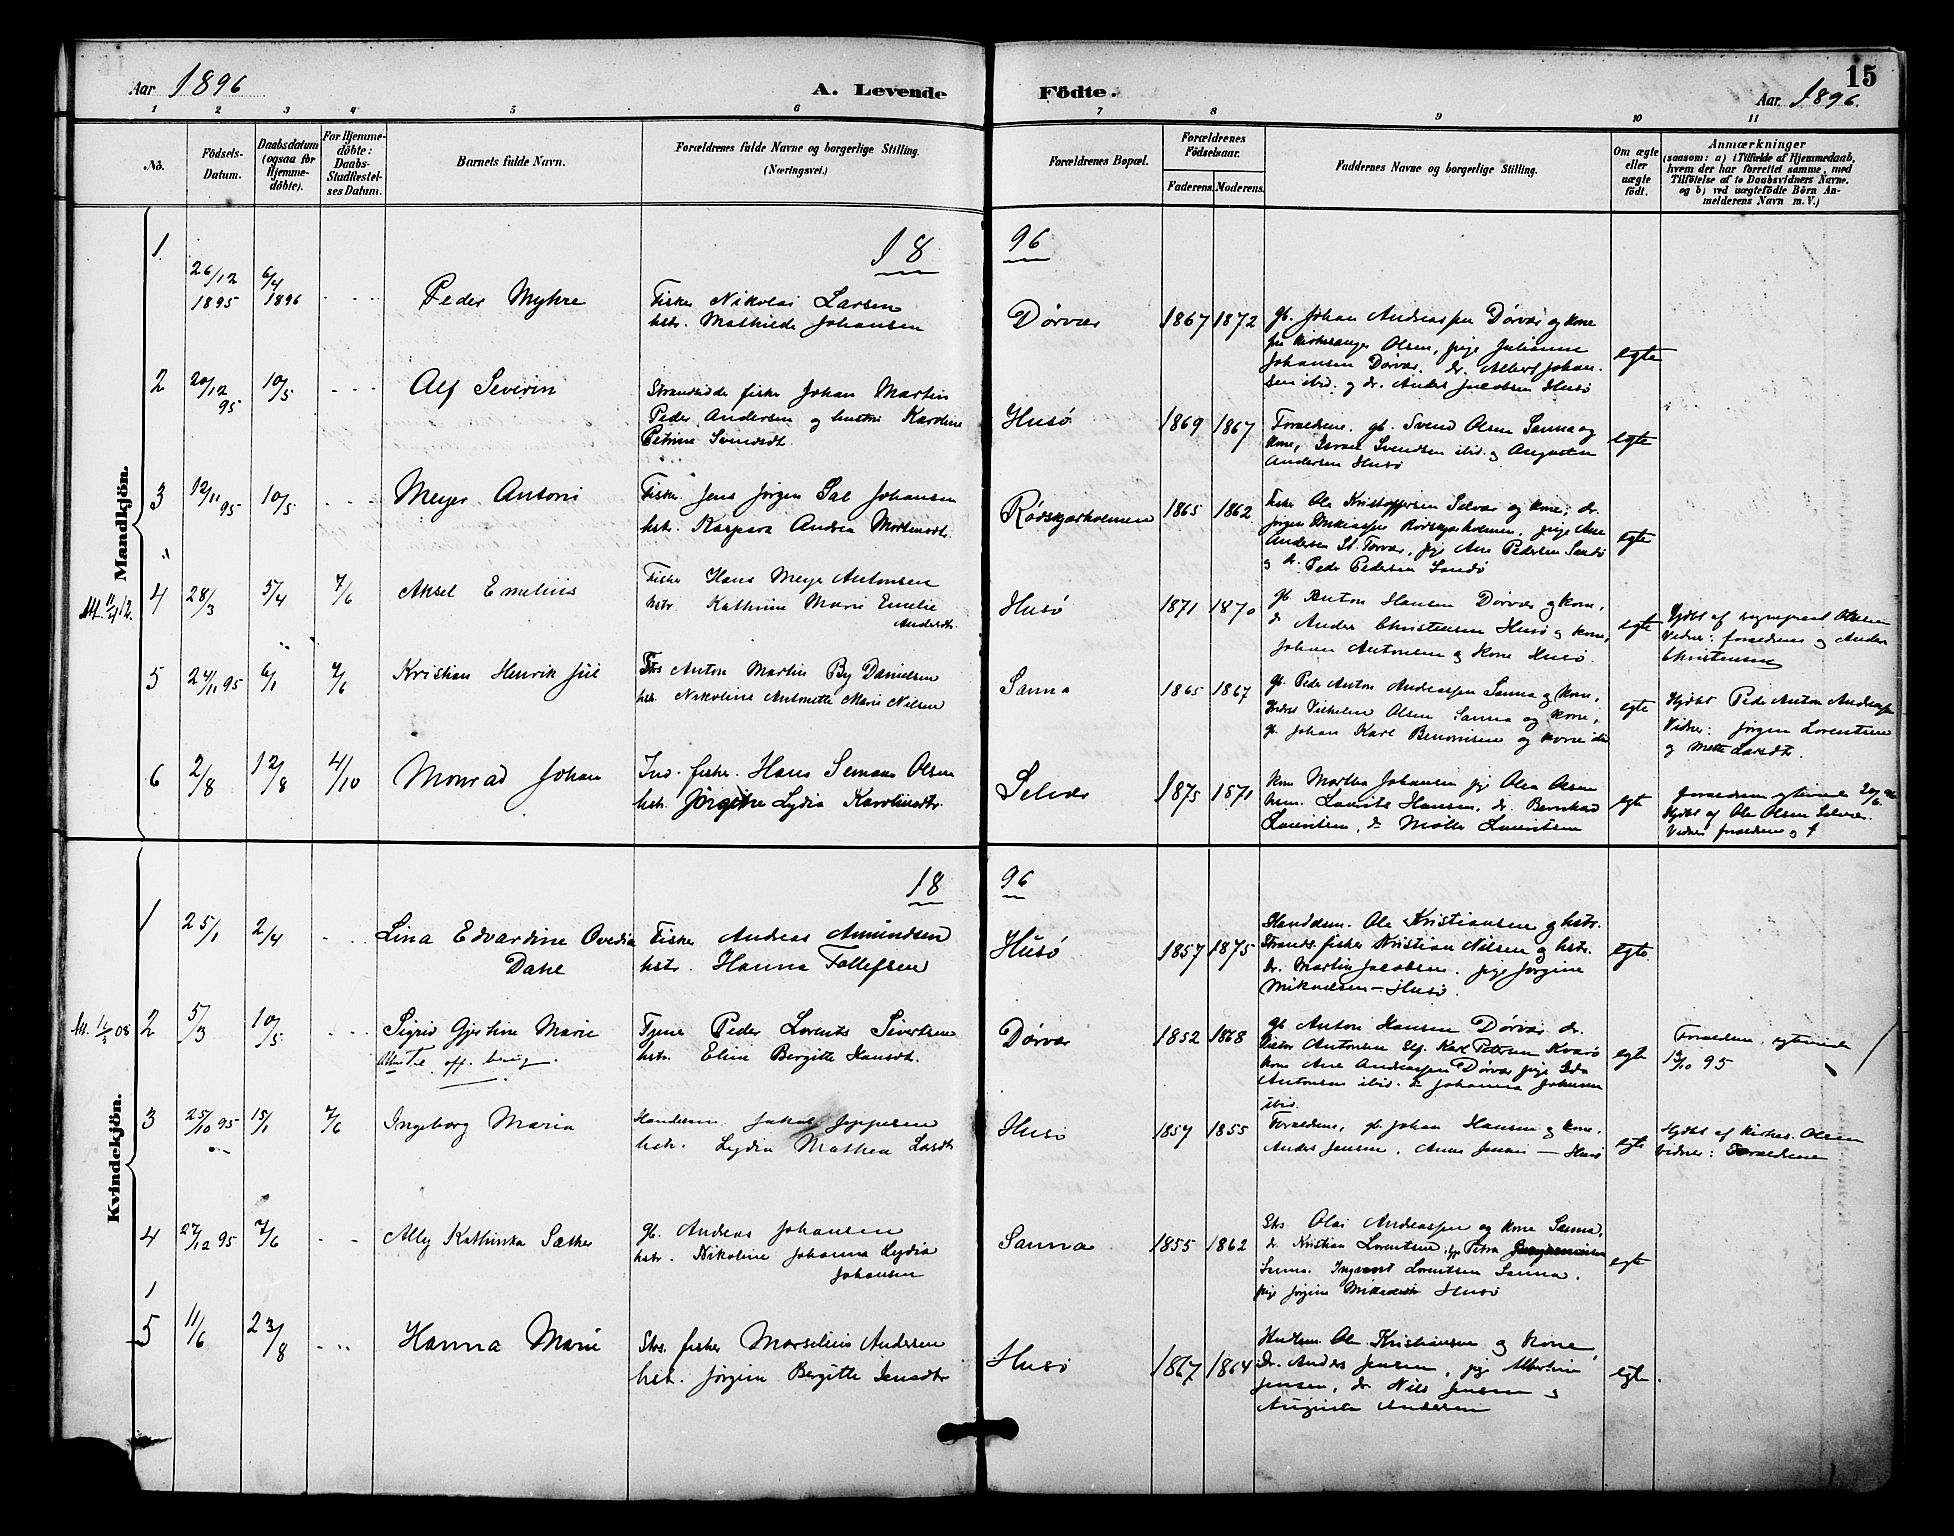 15
Aar 1896
A. Levende
Födte.
Aar 1896.
1 2 3 4 5 6 7 8 9 10 11
No.
Födsels-Datum.
Daabsdatum (ogsaa for Hjemme-döbte).
For Hjemme-döbte: Daabs-Stadfæstel-ses Datum.
Barnets fulde Navn.
Forældrenes fulde Navne og borgerlige Stilling.
(Næringsvei.)
Forældrenes Bopæl.
Forældrenes Födselsaar.
Faderens. Moderens.
Faddernes Navne og borgerlige Stilling.
Om ægte eller uægte födt.
Anmærkninger
(saasom: a) i Tilfælde af Hjemmedaab, hvem der har forrettet samme, med Tilföielse af to Daabsvidners Navne, og b) ved uægtefödte Börn An-melderens Navn m. V.)
Mandkjön.
18 96
1
26/12 1895
6/4 1896
Peder Myhre
Fisker Nikolai Larsen
hstr. Mathilde Johansen
Dørvær
1867 1872
gb. Johan Andreassen Dørvær og kone
kirkesanger Olsen, pige Julianne
Johansen Dørvær. dr. Albert Johan-
sen ibid. og dr. Anders Jacobsen Husø
egte
2
20/12 95
10/5
Alf Severin
Strandsidde fisker Johan Martin
Peder Andersen og hustru Karoline
Petrine Svendsdt.
Husø
1869 1867
Forældrene. gb. Svend Olsen Sanna og
kone, Svendsen ibid. og Augusta
Andersen Husø
egte
3
12/11 95
10/5
Meyer Antoni
Fisker Jens Jørgen Sal Johansen
hstr. Kaspara Andrea Mortensdtr.
Rødskjærholmen
1865 1862
Fisker Ole Kristoffersen Selvær og kone, dr.
Jørgen Rødskjærholmen, pige Ane
Andersen St. Forvær, pige Ane Pedersen Sandø
og dr. Peder Pedersen Sandø
egte
4
28/3
5/4
7/6
Aksel Emelius
Fisker Hans Meyer Antonsen
hstr. Kathrine Marie Emelie
Andersdtr.
Husø
1871 1870
gb. Anton Hansen Dørvær og kone,
dr. Anders Christensen Husø og kone,
Johan Antonsen og kone Husø.
egte
Hjdbt af Olsen
Vidner: forældrene og Anders
Christensen
5
24/11 95
6/1
7/6
Kristian Henrik Jul
Strs Anton Martin By Danielsen
hstr. Nikoline Antonette Marie Nilsen
Sanna
1865 1867
gb. Peder Anton Andreassen Sanna og kone,
Vilhelm Olsen Sanna og kone,
gb. Johan Karl Benonisen og kone ibid
egte
Hjdbt Peder Anton Andreassen
Vidner: Jørgen Lorentsen
og Mette Larsdt.
6
2/8
12/8
4/10
Monrad Johan
Ind. fisker. Hans Olsen
hstr. Jørgine Lydia Karolinsdtr.
Selvær
1875 1871
kone Martha Johansen pige Olea Olsen
Laurits Hansen, dr. Bernhard
Lauritsen, dr. Møller Lauritsen
egte
forældrene egteviede
Hjdbt af Ole Olsen Selvær.
Vidner forældrene
Kvindekjön.
18 96
1
25/1
2/4
Lina Edvardine Ovedia
Dahl
Fisker Andreas Amundsen
hstr. Hanna Tollefsen
Husø
1857 1875
Handelsm. Ole Kristiansen og hstr.
Strands. fisker Kristian Nilsen og hstr.
dr. Martin Jacobsen. pige Jørgine
Mikaelsen - Husø.
egte.
2
5/3
10/5
Sigrid Gjertine Marie
Tjener Peder Lorents Sivertsen
hstr. Eline Bergitte Hansdt.
Dørvær
1852 1868
gb Anton Hansen Dørvær dr.
Antonsen Karl Petersen Kvarø
kone Ane Andreassen Dørvær pige Ida
Antonsen ibid. Johanna Johansen
ibid.
egte
Forældrene egteviede
13/10 95
3
25/10 95
15/1
7/6
Ingeborg Maria
Handelsm. Jakob Jeppesen
hstr. Lydia Mathea Larsdt
Husø
1857 1855
Forældrene, gb. Johan Hansen og kone,
Anders Jensen. Anna Jensen - Husø
egte
Hjdbt af kirkes. Olsen
vidner: Forældrene
4
27/12 95
7/6
Ally Kathinka Sæther
gb. Andreas Johansen
hstr. Nikoline Johanna Lydia
Johansen
Sanna
1855 1862
Strs Olai Andreassen og kone Sanna,
dr. Kristian Lorentsen, pige Petra
Sanna. Ingvart Lorentsen Sanna.
pige Jørgine Husø
egte
5
11/6
23/8
Hanna Marie
Strs. fisker Marselius Andersen
hstr. Jørgine Bergitte Jensdtr
Husø
1867 1864
Handlsm. Ole Kristiansen og kone,
Dr. Anders Jensen, pige Albertine
Jensen, dr. Nils Jensen og
Augusta Andersen
egte.